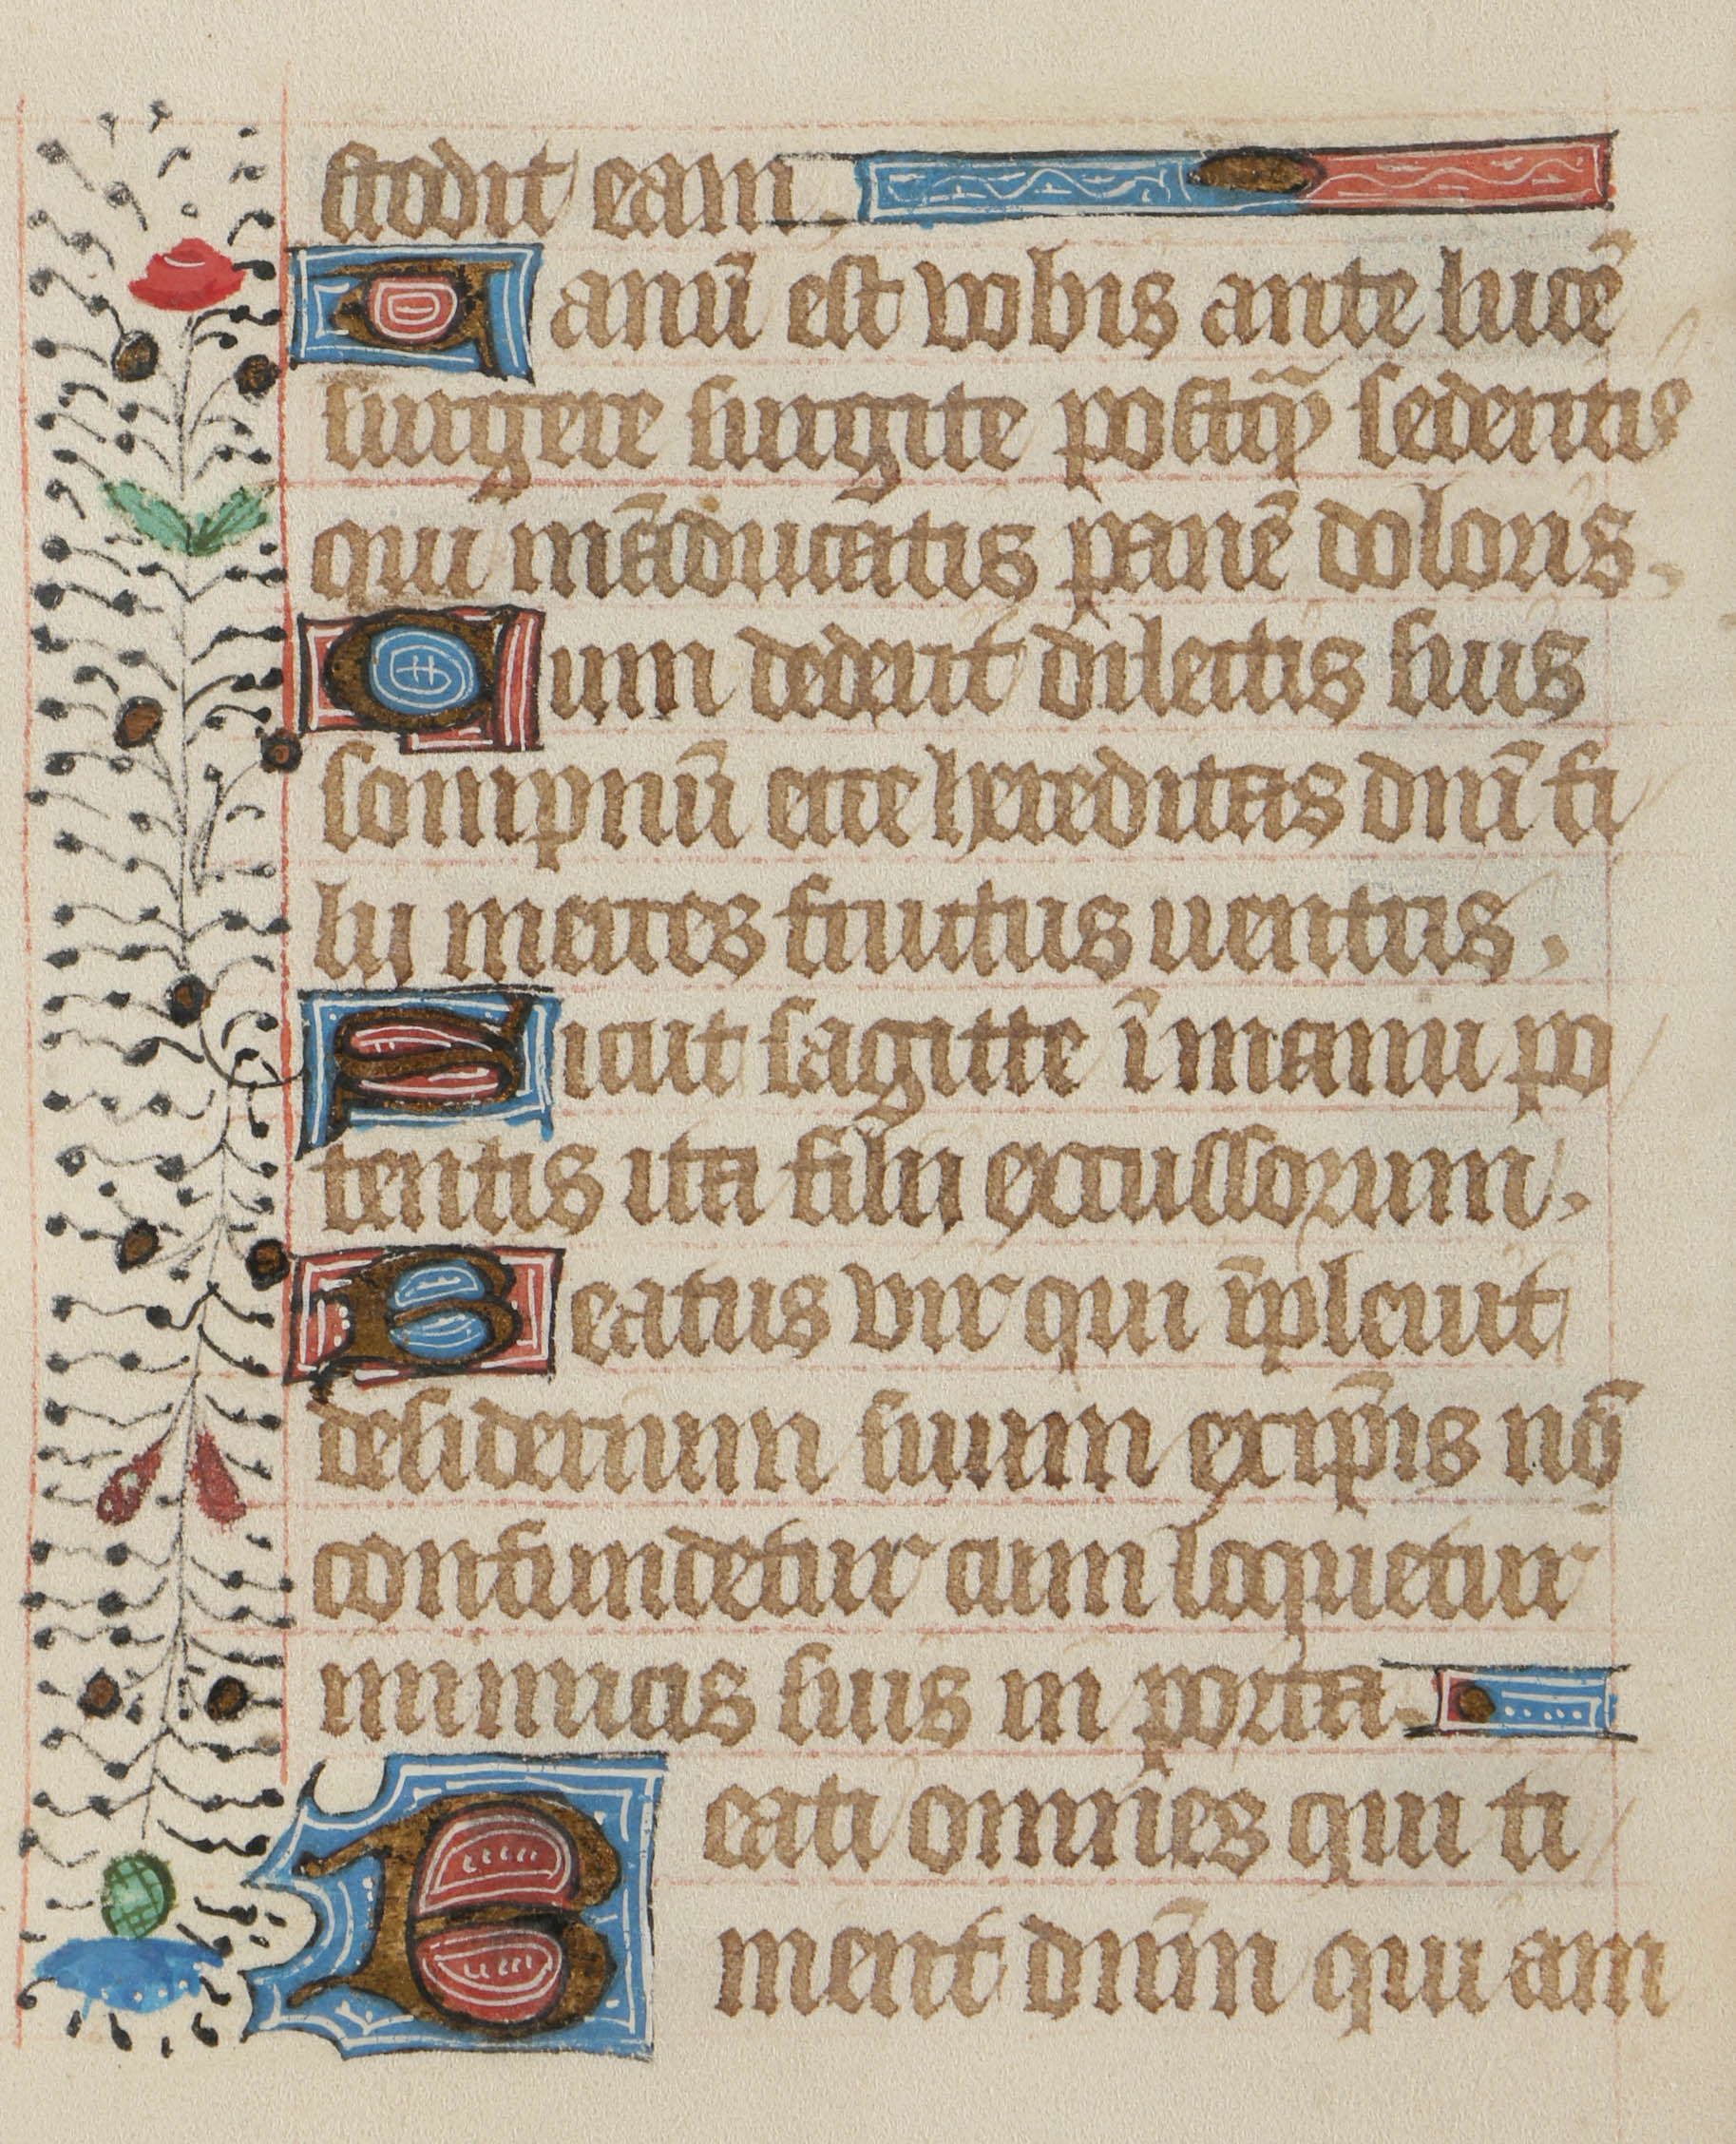 stodit eam.
Vanū est vobis ante lucē
surgere surgite postq̄ʒ sederitis
qui māducatis panē doloris.
Cum dederit dilectis suis
sompnū ecce hereditas dnī fi
lij merces fructus uentris.
Sicut sagitte ī manu po
tentis ita filii excussorum.
Beatus vir qui īpleuit
desiderium suum ex ip̄is nō
confundetur cum loquetur
inimicis suis in porta.
Beati omnes qui ti
ment dnm̄ qui am